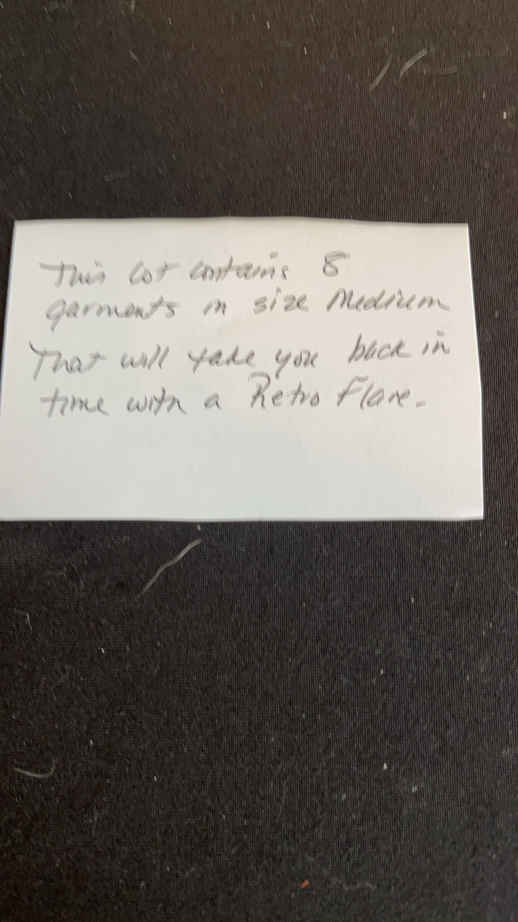 This Lot contains 8
garments in size Medium
That will take you back in
time with a Retro Flare.